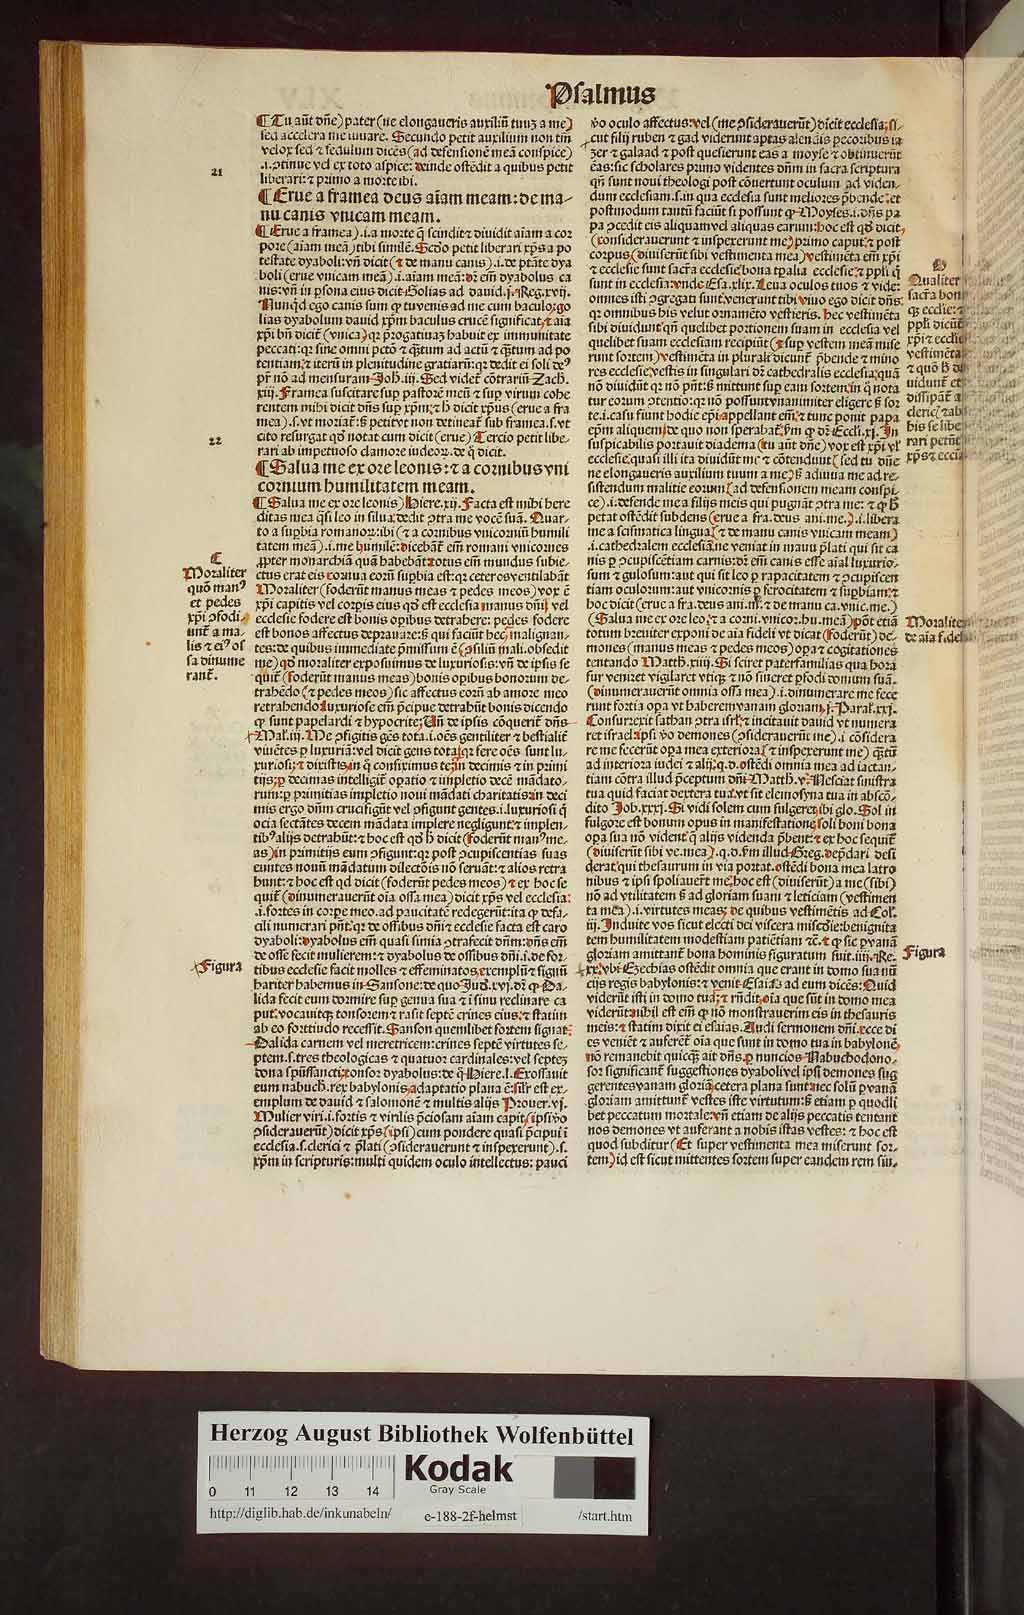 Psalmus
¶Tu aūt dn̄e) pater (ne elongaueris auxiliū tuuʒ a me)
sed accelera me iuuare. Secundo petit auxilium non tm̄
velox sed & sedulum dicēs (ad defensionē meā conspice)
.i. ꝯtinue vel ex toto aspice: deinde ostēdit a quibus petit
liberari: & primo a morte ibi.
21
¶Erue a framea deus aīam meam: de ma-
nu canis vnicam meam.
¶Erue a framea).i.a morte q̄ scindit & diuidit aīam a cor
pore (aīam meā) tibi similē. Scd̓o petit liberari xp̄s a po
testate dyaboli: vn̄ dicit (& de manu canis).i.de ptāte dya
boli (erue vnicam meā).i.aīam meā: dʒ em̄ dyabolus ca
nis: vn̄ in ꝑsona eius dicit Golias ad dauid.j.Reg.xvij.
Nunqd̓ ego canis sum ꝙ tu venis ad me cum baculo: go
lias dyabolum dauid xp̄m baculus crucē significat, & aīa
xp̄i bn̄ dicit (vnica) qꝛ p̄rogatiuaʒ habuit ex immunitate
peccati: qꝛ sine omni pctō & q̄tum ad actū & q̄tum ad po
tentiam: & iterū in plenitudine gratiarū: qꝛ dedit ei soli deꝰ
pr̄ nō ad mensuram Joh̄.iij. Sed videt̄ cōtrariū Zach.
xiij. Framea suscitare sup pastorē meū & sup virum cohe
rentem mihi dicit dn̄s sup xp̄m: & h̄ dicit xp̄us (erue a fra
mea).s.vt moriat̄: s̄ petit vt non detineat̄ sub framea.s.vt
cito resurgat qd̓ notat cum dicit (erue) Tercio petit libe-
rari ab impetuoso clamore iudeoꝝ. de q̄ dicit.
22
¶Salua me ex ore leonis: & a cornibus vni
cornium humilitatem meam.
¶Salua me ex ore leonis) Hiere.xij. Facta est mihi here
ditas mea q̄si leo in silua: dedit ꝯtra me vocē suā. Quar-
to a supbia romanoꝝ: ibi (& a cornibus vnicorniū humili
tatem meā).i.me humilē: dicebāt em̄ romani vnicornes
ꝓpter monarchiā quā habebāt: totus em̄ mundus subie-
ctus erat eis: cornua eorū supbia est: qꝛ ceteros ventilabāt
Moraliter (foderūt manus meas & pedes meos) vox ē
xp̄i capitis vel corpis eius qd̓ est ecclesia manus dn̄i vel
ecclesie fodere est bonis opibus detrahere: pedes fodere
est bonos affectus deprauare: s̄ qui faciūt hec, malignan-
tes: de quibus immediate p̄missum ē (ꝯsiliū mali. obsedit
me) qd̓ moraliter exposuimus de luxuriosis: vn̄ de ipsis se
quit̄ (foderūt manus meas) bonis opibus bonorum de-
trahēdo (& pedes meos) sic affectus eorū ab amore meo
retrahendo luxuriose em̄ p̄cipue detrahūt bonis dicendo
ꝙ sunt papelardi & hypocrite: Un̄ de ipsis cōquerit̄ dn̄s
Mal.iij. Me ꝯfigitis gēs tota.i.oēs gentiliter & bestialit̄
viuētes ꝑ luxuriā: vel dicit gens tota, qꝛ fere oēs sunt lu-
xuriosi: & dixistis, in q̄ confiximus te, in decimis & in primi
tijs: ꝑ decimas intelligit̄ operatio & impletio decē mādato-
rum: ꝑ primitias impletio noui mādati charitatis: in deci
mis ergo dn̄m crucifigūt vel ꝯfigunt gentes.i.luxuriosi q̄
ocia sectātes decem mādata implere negligunt: & implen-
tibꝰ alijs detrahūt: & hoc est qd̓ h̄ dicit (foderūt manꝰ me-
as) in primitijs eum ꝯfigunt: qꝛ post ꝯcupiscentias suas
euntes nouū mādatum dilectōis nō seruāt: & alios retra
hunt: & hoc est qd̓ dicit (foderūt pedes meos) & ex hoc se
quit̄ (dinumerauerūt oīa ossa mea) dicit xp̄s vel ecclesia:
.i.fortes in corpe meo. ad paucitatē redegerūt: ita ꝙ defa-
cili numerari pn̄t: qꝛ de ossibus dn̄i & ecclesie facta est caro
dyaboli: dyabolus em̄ quasi simia ꝯtrafecit dn̄m: dn̄s em̄
de osse fecit mulierem: & dyabolus de ossibus dn̄i.i.de for-
tibus ecclesie facit molles & effeminatos, exemplū & signū
hariter habemus in Sansone: de quo Jud̓.xvj.dʒ ꝙ Da-
lida fecit eum dormire sup genua sua & ī sinu reclinare ca
put: vocauitqꝫ tonsorem & rasit septē crines eius: & statim
ab eo fortitudo recessit. Sanson quemlibet fortem signat:
Dalida carnem vel meretricem: crines septē virtutes se-
ptem.s.tres theologicas & quatuor cardinales: vel septeʒ
dona spūssancti: tonsor dyabolus: de q̄ Hiere.l. Exossauit
eum nabuch. rex babylonis, adaptatio plana ē: sil̓r est ex-
emplum de dauid & salomone & multis alijs Prouer.vj.
Mulier viri.i.fortis & virilis p̄ciosam aīam capit, (ipsi ꝟo
ꝯsiderauerūt) dicit xp̄s (ipsi) cum pondere quasi p̄cipui ī
ecclesia.s.clerici & p̄lati (ꝯsiderauerunt & inspexerunt).s.
xp̄m in scripturis: multi quidem oculo intellectus: pauci
C
Moraliter
quō manꝰ
et pedes
xp̄i ꝯfodi
unt̄ a ma-
lis & eiꝰ os
sa dinume
rant̄.
Figura
ꝟo oculo affectus: vel (me ꝯsiderauerūt) dicit ecclesia, si-
cut filij ruben & gad viderunt aptas alendis pecoribus ia
zer & galaad & post quesierunt eas a moyse & obtinuerūt
eas: sic scholares primo videntes dn̄m in sacra scriptura
qn̄ sunt noui theologi post cōuertunt oculum ad viden-
dum ecclesiam.s.in qua ecclesia sunt meliores p̄bende: et
postmodum tantū faciūt si possunt ꝙ Moyses.i.dn̄s pa
pa ꝯcedit eis aliquam vel aliquas earum: hoc est qd̓ dicit,
(considerauerunt & inspexerunt me) primo caput: & post
corpus (diuiserūt sibi vestimenta mea) vestimēta em̄ xp̄i
& ecclesie sunt sacra ecclesie bona tp̄alia ecclesie: & ppl̓i q̄
sunt in ecclesia: vnde Esa.xlix. Leua oculos tuos & vide:
omnes isti ꝯgregati sunt, venerunt tibi: viuo ego dicit dn̄s:
qꝛ omnibus his velut ornamēto vestieris. hec vestimēta
sibi diuidunt: qn̄ quelibet portionem suam in ecclesia vel
quelibet suam ecclesiam recipiūt (& sup vestem meā mise
runt sortem) vestimēta in plurali dicunt̄ p̄bende & mino
res ecclesie, vestis in singulari dʒ cathedralis ecclesia: quā
nō diuidūt qꝛ nō pn̄t: s̄ mittunt sup eam sortem: in q̄ nota
tur eorum ꝯtentio: qꝛ nō possunt vnanimiter eligere s̄ sor
te.i.casu fiunt hodie epī, appellant em̄: & tunc ponit papa
ep̄m aliquem de quo non sperabat̄: ẜm ꝙ dʒ Eccl̓i.xj. In
suspicabilis portauit diadema (tu aūt dn̄e) vox est xp̄i vl̓
ecclesie, quasi illi ita diuidūt me & cōtendūt (sed tu dn̄e
ne elongaueris auxilium tuum a me) s̄ adiuua me ad re-
sistendum malitie eorum (ad defensionem meam conspi-
ce).i.defende me a filijs meis qui pugnāt ꝯtra me: & ꝙ h̄
petat ostēdit subdens (erue a fra. deus ani. me.).i.libera
me a scismatica lingua (& de manu canis vnicam meam)
.i.cathedralem ecclesiā: ne veniat in manu p̄lati qui sit ca
nis ꝑ ꝯcupiscētiam carnis: dʒ em̄ canis esse aīal luxurio-
sum & gulosum: aut qui sit leo ꝑ rapacitatem & ꝯcupiscen
tiam oculorum: aut vnicornis ꝑ ferocitatem & supbiam: &
hoc dicit (erue a fra. deus ani. m̄. & de manu ca. vnic. me.)
(Salua me ex ore leo. & a corni. vnicor. hu. meā) pōt etiā
totum breuiter exponi de aīa fideli vt dicat (foderūt) de-
mones (manus meas & pedes meos) opa & cogitationes
tentando Matth.xiiij. Si sciret paterfamilias qua hora
fur veniret vigilaret vtiqꝫ & nō sineret ꝑfodi domum suā.
(dinumerauerūt omnia ossa mea).i.dinumerare me fece
runt fortia opa vt haberem vanam gloriam, j.Paral̓.xxj.
Consurrexit sathan ꝯtra isrl̓ & incitauit dauid vt numera
ret israel: ipsi ꝟo demones (ꝯsiderauerūt me).i.cōsidera
re me fecerūt opa mea exteriora (& inspexerunt me) q̄tū
ad interiora iudei & alij: q.d. ostēdi omnia mea ad iactan-
tiam cōtra illud p̄ceptum dn̄i Matth.v. Nesciat sinistra
tua quid faciat dextera tua: vt sit elemosyna tua in abscō-
dito Job.xxxj. Si vidi solem cum fulgeret, ibi glo. Sol in
fulgore est bonum opus in manifestatione: soli boni bona
opa sua nō vident̄ q̄ alijs videnda p̄bent: & ex hoc sequit̄
(diuiserūt sibi ve. mea).q.d.ẜm illud Greg. dep̄dari desi
derat, qui thesaurum in via portat. ostēdi bona mea latro
nibus & ipsi spoliauerūt me, hoc est (diuiserūt) a me (sibi)
nō ad vtilitatem s̄ ad gloriam suam & leticiam (vestimen
ta mea).i.virtutes meas: de quibus vestimētis ad Col̓.
iij. Induite vos sicut electi dei viscera mīscd̓ie: benignita
tem humilitatem modestiam patiētiam &c. & ꝙ sic ꝑ vanā
gloriam amittant̄ bona hominis figuratum fuit.iiij.Re.
xx. vbi Ezechias ostēdit omnia que erant in domo sua nū
cijs regis babylonis: & venit Esaias ad eum dicēs: Quid
viderūt isti in domo tua: & rn̄dit, oīa que sūt in domo mea
viderūt: nihil est em̄ ꝙ nō monstrauerim eis in thesauris
meis: & statim dixit ei esaias. Audi sermonem dn̄i. ecce di
es veniēt & auferēt̄ oīa que sunt in domo tua in babylonē,
nō remanebit quicqꝫ ait dn̄s. ꝑ nuncios Nabuchodono-
sor significant̄ suggestiones dyaboli vel ipsi demones sug
gerentes vanam gloriā, cetera plana sunt: nec solū ꝑ vanā
gloriam amittunt̄ vestes iste virtutum: s̄ etiam ꝑ quodli
bet peccatum mortale: vn̄ etiam de alijs peccatis tentant
nos demones vt auferant a nobis istas vestes: & hoc est
quod subditur (Et super vestimenta mea miserunt sor-
tem) id est sicut mittentes sortem super eandem rem siu-
D
Qualiter
sacra bon
qꝫ eccl̓ie: &
ppl̓i dicūt
xp̄i & eccl̓ie
vestimēta
& quō h̄ di
uidunt et
dissipāt a
cleric̄ & ab
his se libe
rari petūt
xp̄s & eccl̓ia
Moraliter
de aīa fidel̓
Figura
Herzog August Bibliothek Wolfenbüttel
0 11 12 13 14
Kodak
Gray Scale
http://diglib.hab.de/inkunabeln/
e-188-2f-helmst
/start.htm